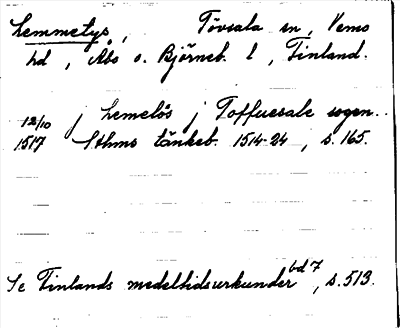 Lemmetys, Tövsala sn, Vemo
hd, Åbo o. Björneb. l, Finland.
12/10 1517 j Lemelös j Toffuesale sogen.
Sthms tänkeb. 1514-24, s. 165.
Se Finlands medeltidsurkunder bd 7, s. 513.